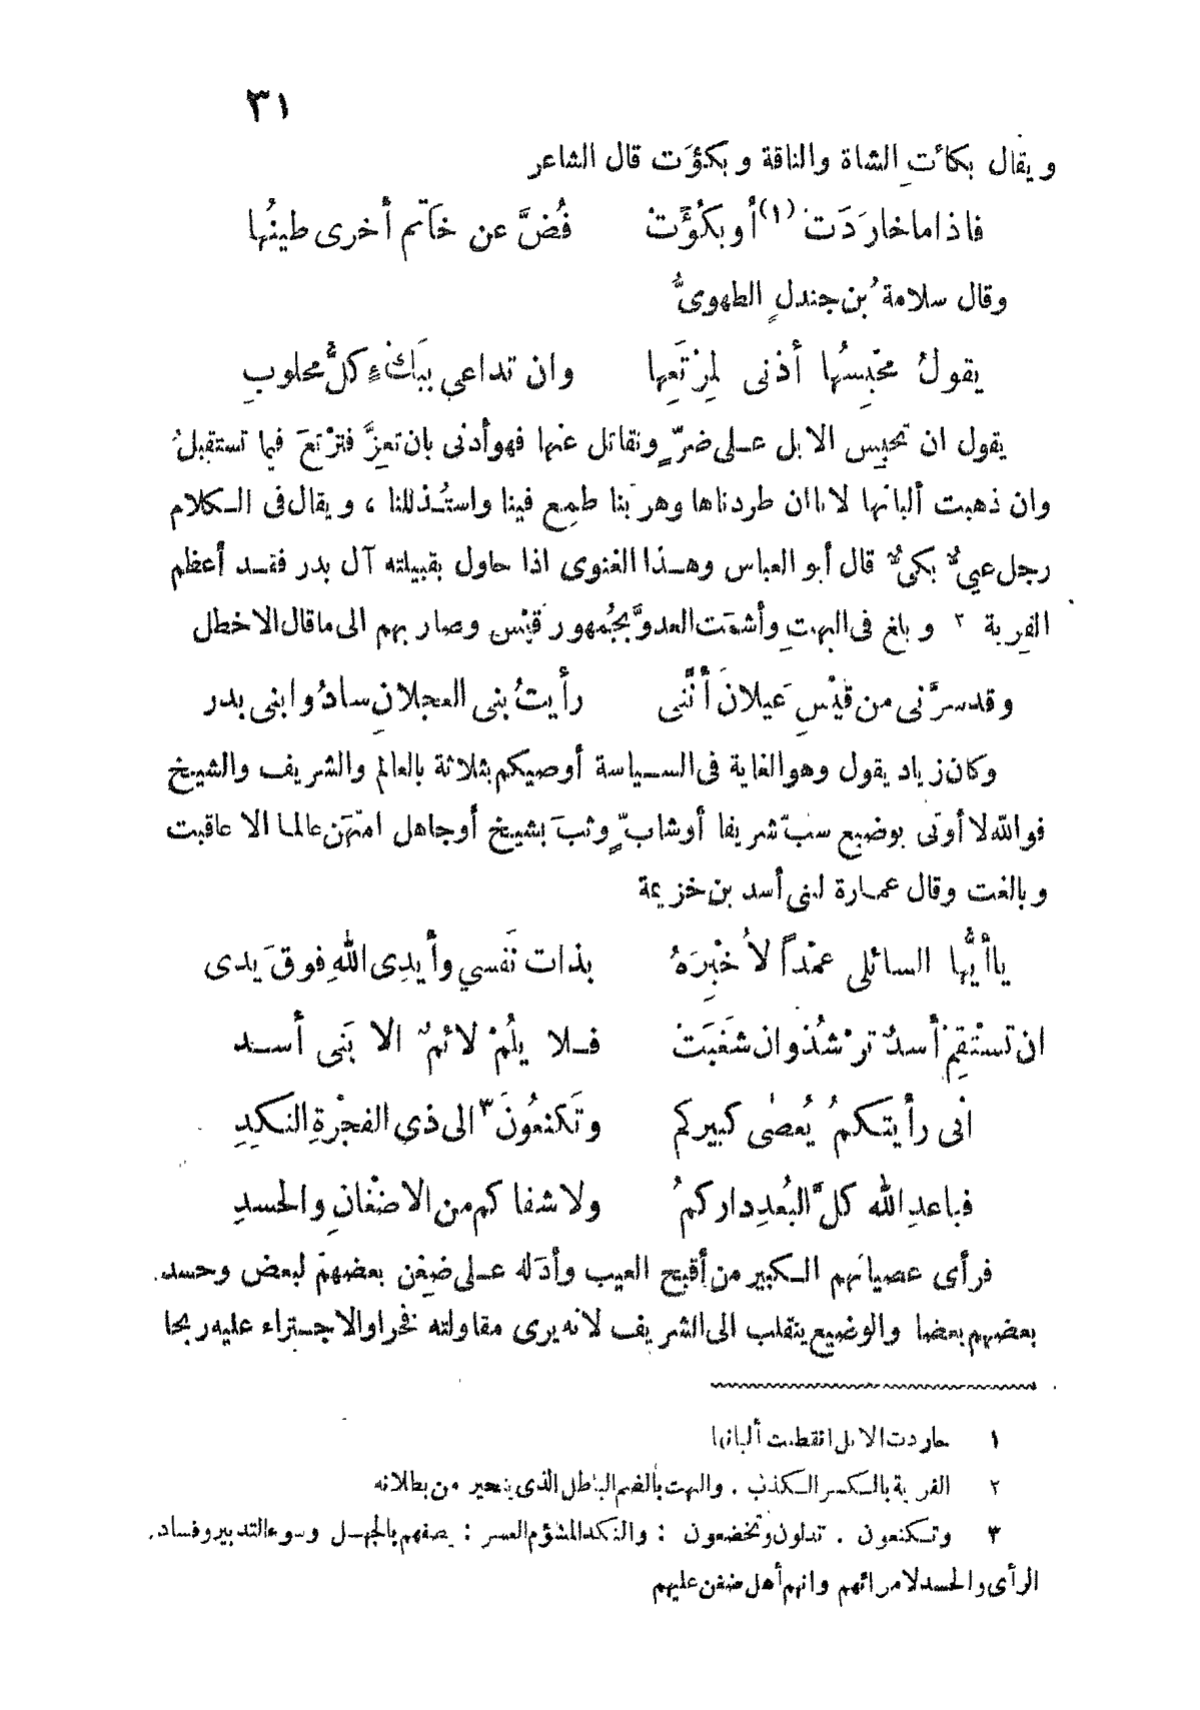 ٣١
ويقال بكأتِ الشاة والناقة وبكؤَت قال الشاعر
فاذا ما خارَدَتْ (١) أو بكُؤَتْ فُضَّ عن خَاتم أخرى طينُها
وقال سلامةُ بن جندلٍ الطهوىُّ
يقولُ محْبِسُها أدنى لِمرْتَعِها وان تداعى بِبَكْءٍ كلُّ محلوبِ
يقول ان تحبِس الابل على ضرّ ونقاتل عنها فهو أدنى بان تعِزَّ فترْتعَ فيما تستقبلُ
وان ذهبت ألبانها لاننا ان طردناها وهربنا طمِع فينا واستُذللنا ، ويقال فى الكلام
رجل عيىٌّ بكىٌّ قال أبو العباس وهذا الغنوى اذا حاول بقبيلته آل بدر فقد أعظم
الفِرية ٢ وبلغ فى البهتِ وأشمَت العدوَّ بجُمهور قيْس وصار بهم الى ما قال الاخطل
وقد سرَّنى من قيْسِ عَيلانَ أنَّنى رأيتُ بنى العجلانِ سادُوا بنى بدر
وكان زياد يقول وهو الغاية فى السياسة أوصيكم بثلاثة بالعالم والشريف والشيخ
فوالله لا أوتى بوضيع سبّ شريفا أو شابّ وثبَ بشيخ أو جاهل امتهَن عالما الا عاقبت
وبالغت وقال عمارة لبنى أسد بن خزيمة
ياأيُّها السائلى عمْداً لأخْبِرَهُ بذات نَفسي وأيدِى اللهِ فوقَ يدى
ان تستْقِمْ أسدٌ ترْشُدْ وان شغَبَتْ فلا يلُمْ لائمٌ الا بَنى أسد
انى رأيتكمُ يُعصٰى كبيركم وتَكنعُونَ ٣ الى ذي الفجْرةِ النكِدِ
فباعدِ الله كلَّ البُعدِ داركمُ ولا شفاكم من الاضْغانِ والحسدِ
فرأى عصيانهم الكبير من أقبح العيب وأدَله على ضِغْن بعضهم لبعض وحسد
بعضهم بعضا والوضيع ينقلب الى الشريف لانه يرى مقاولته فخرا والاجتراء عليه ربحا
١ حاردت الابل انقطعت ألبانها
٢ الفرية بالكسر الكذب . والبهت بالضم الباطل الذى يتحير من بطلانه
٣ وتكنعون . تدلون وتخضعون : والنكد المشؤم العسر : يصفهم بالجهل وسوء التدبير وفساد
الرأى والحسد لامرائهم وانهم أهل ضغن عليهم